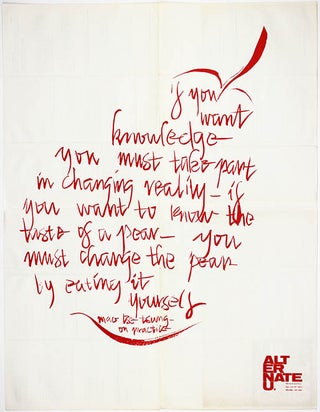 if you
want
knowledge
you must take part
in changing reality – if
you want to know the
taste of a pear – you
must change the pear
by eating it
yourself
mao tse-tung –
on practice
ALT
ER
NATE
U.